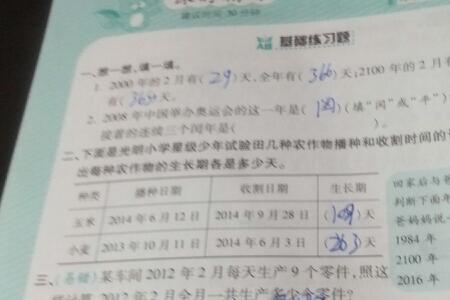 建议时间 30 分钟
基础练习题
一、想一想,填一填。
1. 2000 年的 2 月有( 29 )天,全年有( 366 )天;2100 年的 2 月有
有( 365 )天。
2. 2008 年中国举办奥运会的这一年是( 闰 )(填“闰”或“平”)
接着的连续三个闰年是( )。
二、下面是光明小学星级少年试验田几种农作物播种和收割时间的
出每种农作物的生长期各是多少天。
种类 播种日期 收割日期 生长期
玉米 2014 年 6 月 12 日 2014 年 9 月 28 日 (109)天
小麦 2013 年 10 月 11 日 2014 年 6 月 3 日 (263)天
回家后与爸
判断下面年
爸妈妈说一
1984 年
2100 年
2016 年
三、(易错)某车间 2012 年 2 月每天生产 9 个零件,照这
计算,2012 年 2 月全月一共生产多少个零件?